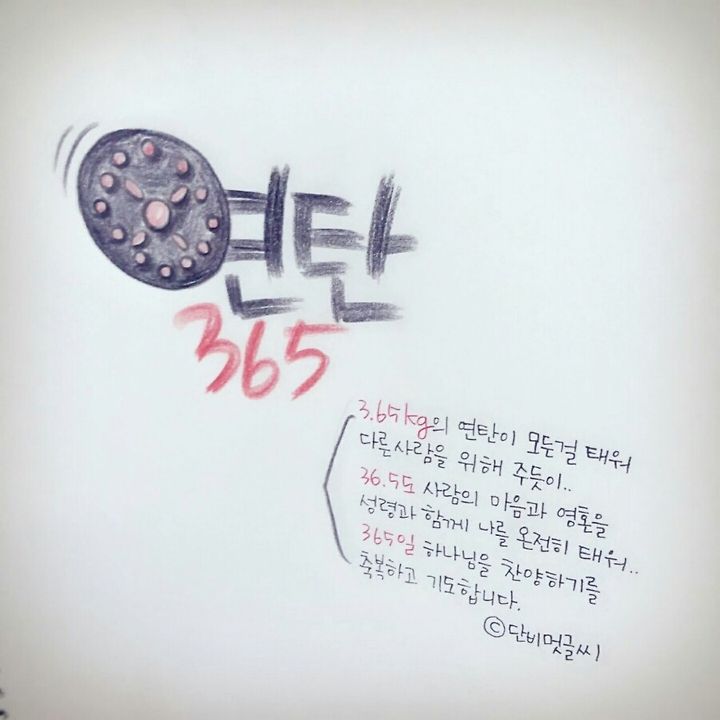 연탄
365
3.65kg의 연탄이 모든걸 태워
다른사람을 위해 주듯이..
36.5도 사람의 마음과 영혼을
성령과 함께 나를 온전히 태워..
365일 하나님을 찬양하기를
축복하고 기도합니다.
©단비멋글씨